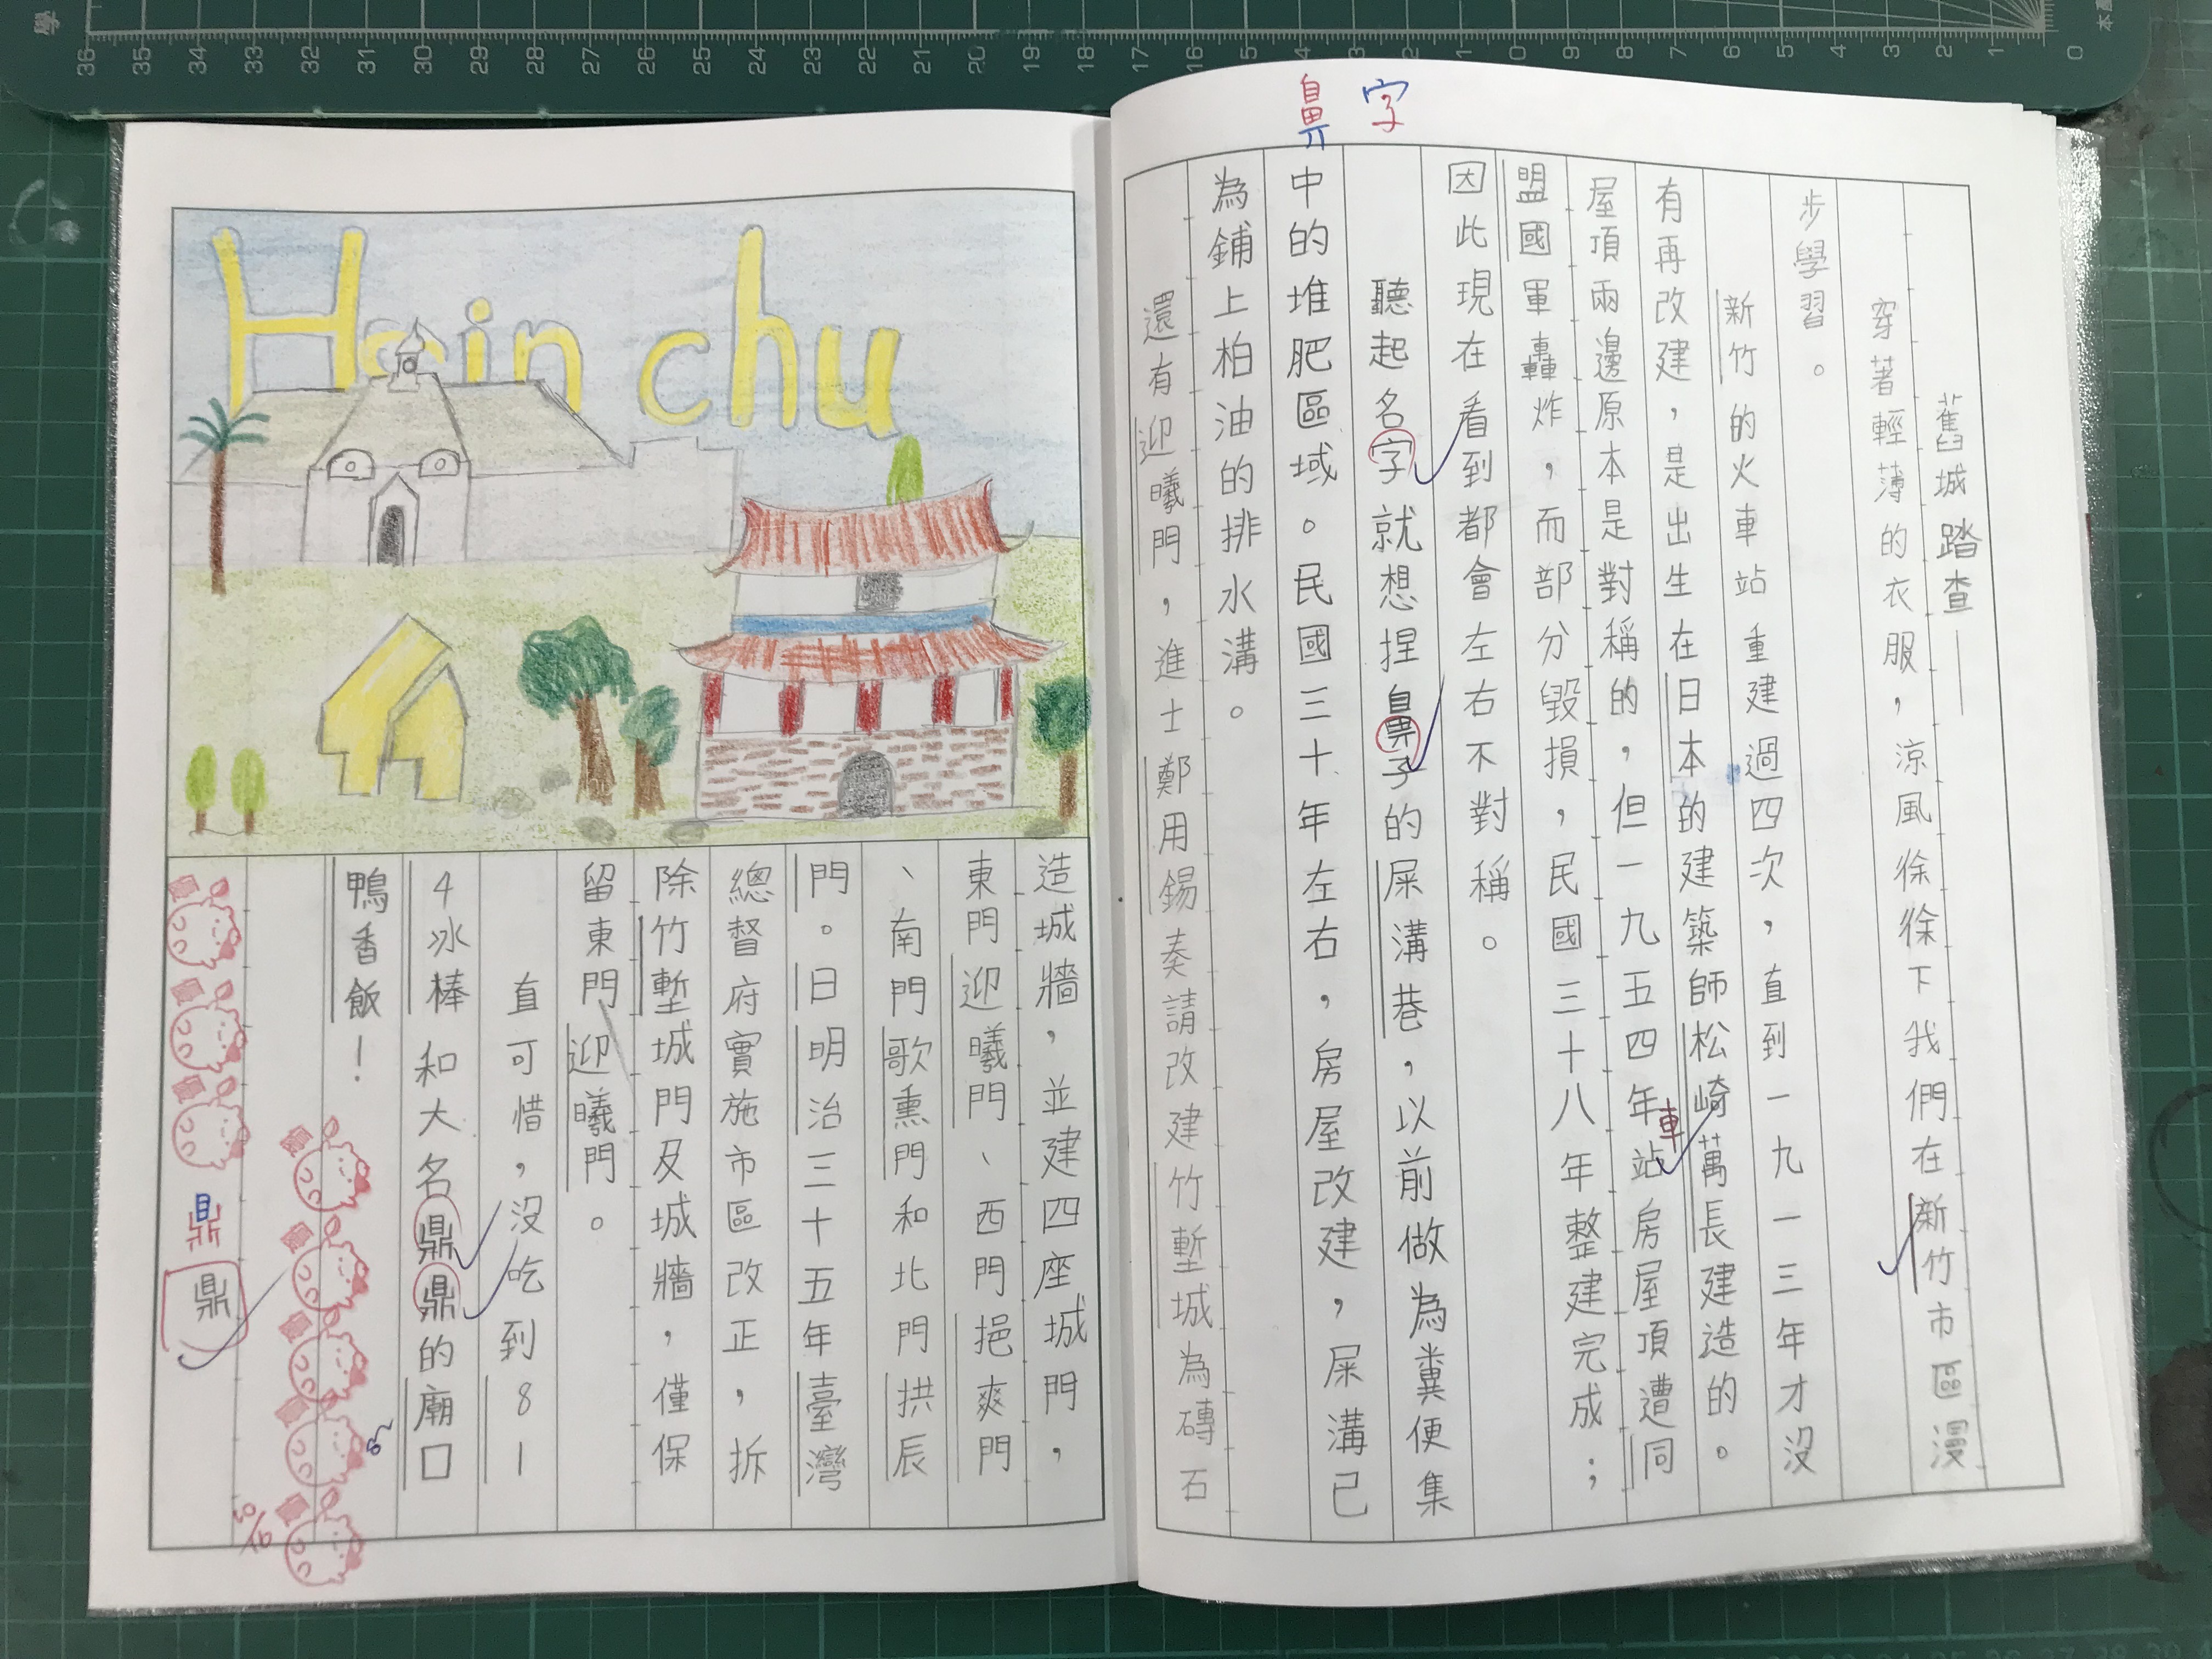 舊城踏查——
穿著輕薄的衣服，涼風徐徐下我們在新竹市區漫
步學習。
新竹的火車站重建過四次，直到一九一三年才沒
有再改建，是出生在日本的建築師松崎萬長建造的。
屋頂兩邊原本是對稱的，但一九五四年站房屋頂遭同
車
盟國軍轟炸，而部分毀損，民國三十八年整建完成；
因此現在看到都會左右不對稱。
字
聽起名字就想捏鼻子的屎溝巷，以前做為糞便集
鼻
中的堆肥區域。民國三十年左右，房屋改建，屎溝已
為鋪上柏油的排水溝。
還有迎曦門，進士鄭用錫奏請改建竹塹城為磚石
Hsin chu
造城牆，並建四座城門，
東門迎曦門、西門挹爽門
、南門歌熏門和北門拱辰
門。日明治三十五年臺灣
總督府實施市區改正，拆
除竹塹城門及城牆，僅保
留東門迎曦門。
直可惜，沒吃到81
4冰棒和大名鼎鼎的廟口
鴨香飯！
鼎
鼎
36 35 34 33 32 31 30 29 28 27 26 25 24 23 22 21 20 19 18 17 16 15 14 13 12 11 10 9 8 7 6 5 4 3 2 1 0